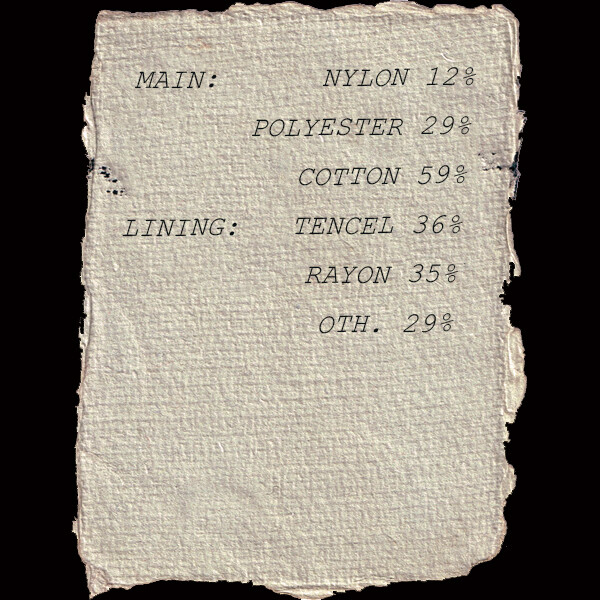 MAIN: NYLON 12%
POLYESTER 29%
COTTON 59%
LINING: TENCEL 36%
RAYON 35%
OTH. 29%